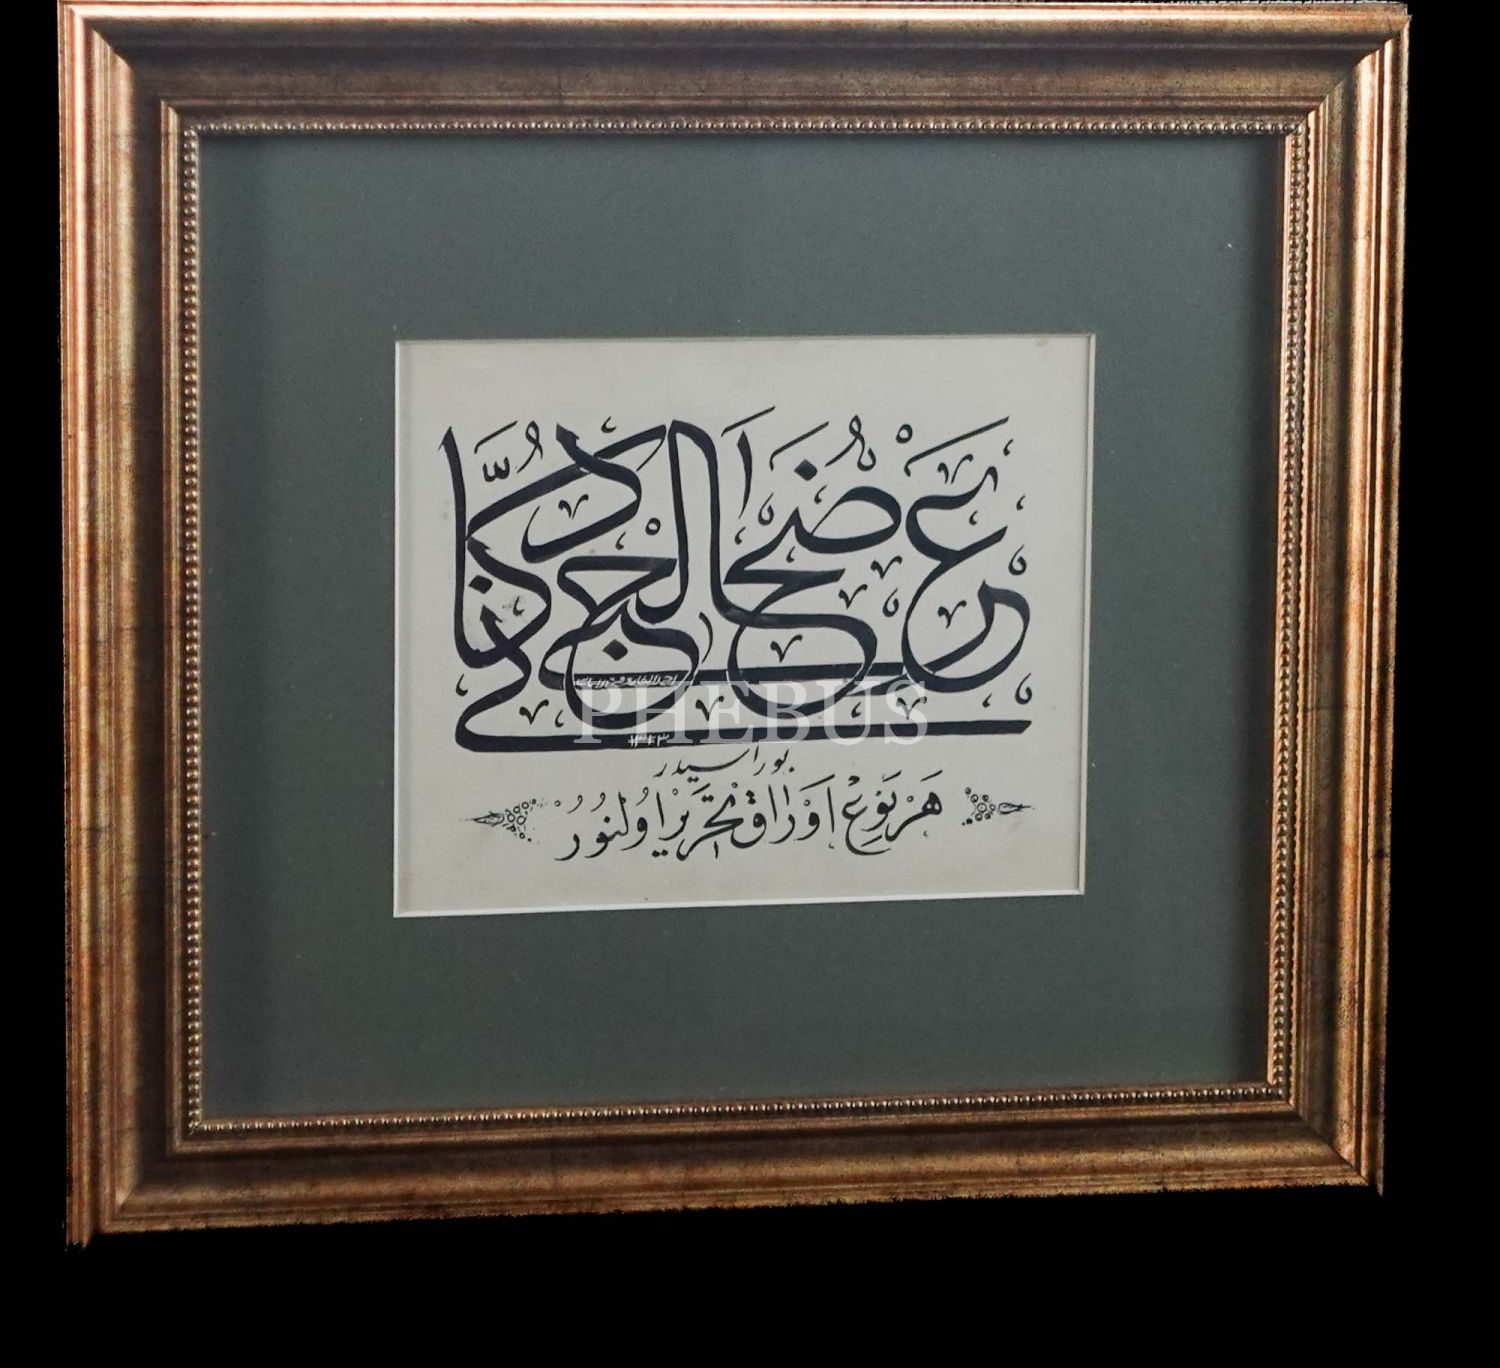 عرضحالجی دكانی
١٣٤٣
بوراسیدر
هر نوع اوراق تحریر اولنور
PHEBUS